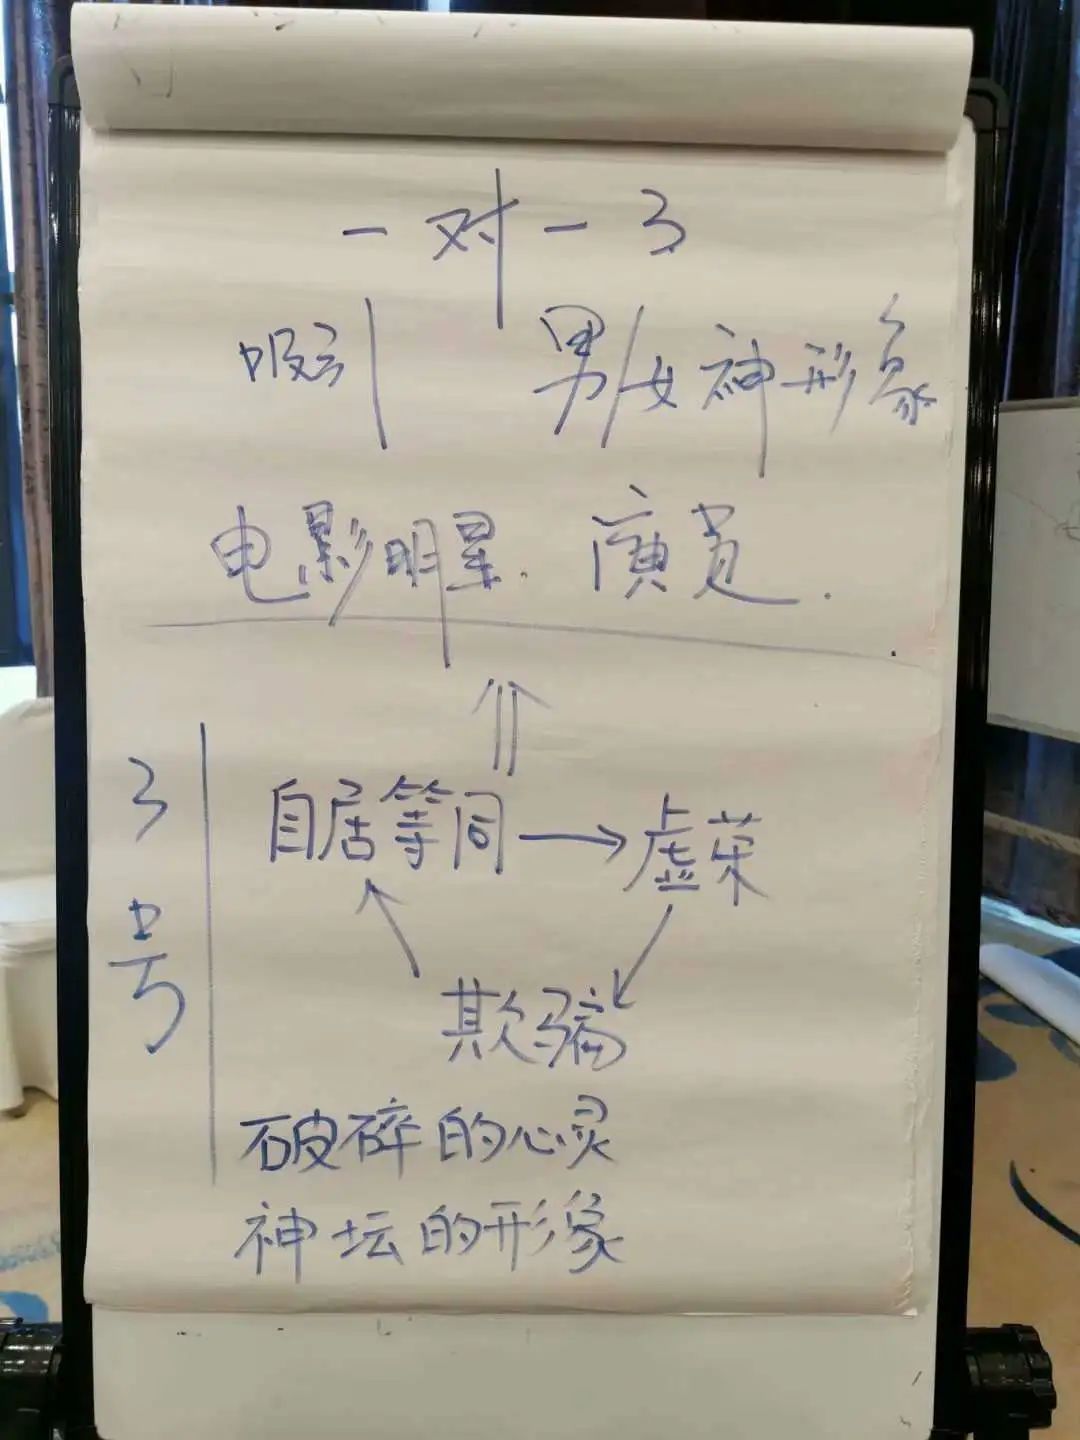 一对一 3
吸引 男/女神形象
电影明星. 演员.
⇑
3号
自居等同 → 虚荣
欺骗
破碎的心灵
神坛的形象